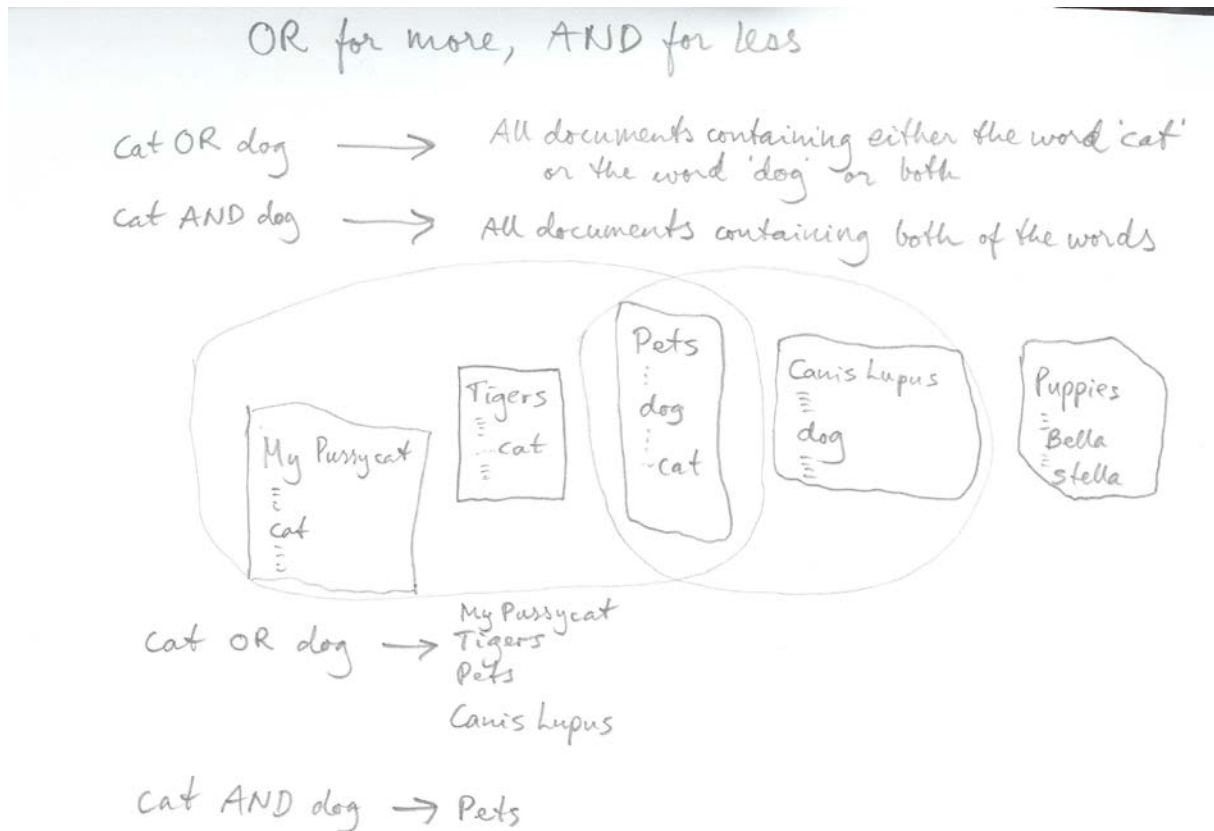 OR for more, AND for less
Cat OR dog → All documents containing either the word 'cat'
or the word 'dog' or both
Cat AND dog → All documents containing both of the words
My Pussycat
cat
Tigers
cat
Pets
dog
cat
Canis Lupus
dog
Puppies
Bella
Stella
Cat OR dog → My Pussycat
Tigers
Pets
Canis Lupus
Cat AND dog → Pets